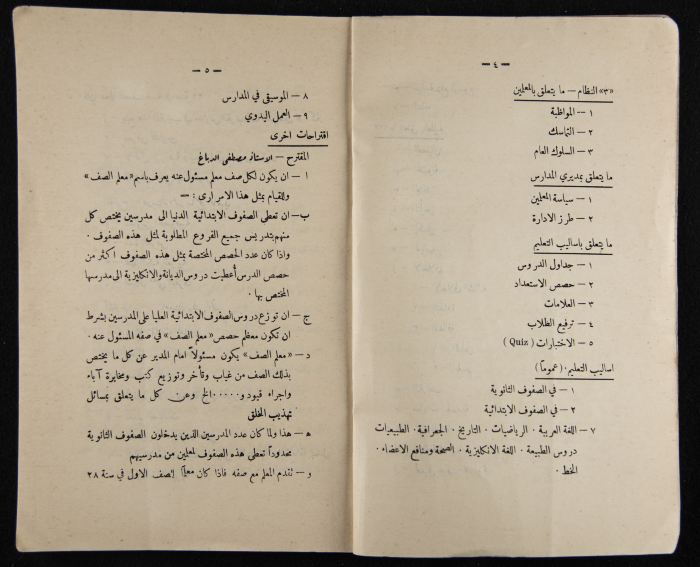 — ٤ —
«٣» النظام — ما يتعلق بالمعلمين
١ — المواظبة
٢ — التماسك
٣ — السلوك العام
ما يتعلق بمديري المدارس
١ — سياسة المعلمين
٢ — طرز الادارة
ما يتعلق باساليب التعليم
١ — جداول الدروس
٢ — حصص الاستعداد
٣ — العلامات
٤ — ترفيع الطلاب
٥ — الاختبارات ( Quiz )
اساليب التعليم . (عموماً)
١ — في الصفوف الثانوية
٢ — في الصفوف الابتدائية
٧ — اللغة العربية . الرياضيات . التاريخ . الجغرافية . الطبيعيات
دروس الطبيعة . اللغة الانكليزية . الصحة ومنافع الاعضاء .
الخط .
— ٥ —
٨ — الموسيقى في المدارس
٩ — العمل اليدوي
اقتراحات اخرى
المقترح — الاستاذ مصطفى الدباغ
ا — ان يكون لكل صف معلم مسئول عنه يعرف باسم «معلم الصف»
وللقيام بمثل هذا الامر ارى : —
ب — ان تعطى الصفوف الابتدائية الدنيا الى مدرسين يختص كل
منهم بتدريس جميع الفروع المطلوبة لمثل هذه الصفوف .
واذا كان عدد الحصص المختصة بمثل هذه الصفوف اكثر من
حصص الدرس أعطيت دروس الديانة والانكليزية الى مدرسها
المختص بها .
ج — ان توزع دروس الصفوف الابتدائية العليا على المدرسين بشرط
ان تكون معظم حصص «معلم الصف» في صفه المسئول عنه .
د — «معلم الصف» يكون مسئولاً امام المدير عن كل ما يختص
بذلك الصف من غياب وتأخر وتوزيع كتب ومخابرة آباء
واجراء قيود و.....الخ وعن كل ما يتعلق بمسائل
تهذيب الخلق
ه — هذا ولما كان عدد المدرسين الذين يدخلون الصفوف الثانوية
محدوداً تعطى هذه الصفوف لمعلمين من مدرسيهم
و — تقدم المعلم مع صفه فاذا كان معلماً لصف الاول في سنة ٣٨